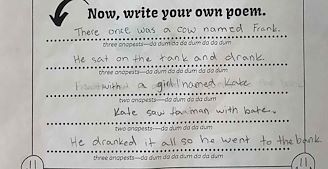 Now, write your own poem.
There once was a cow named Frank.
three anapests—da dum da da dum da da dum
He sat on the tank and drank.
three anapests—da dum da da dum da da dum
with a girl named Kate
two anapests—da dum da da dum
Kate saw man with bate.
two anapests—da dum da da dum
He dranked it all so he went to the bank
three anapests—da dum da da dum da da dum